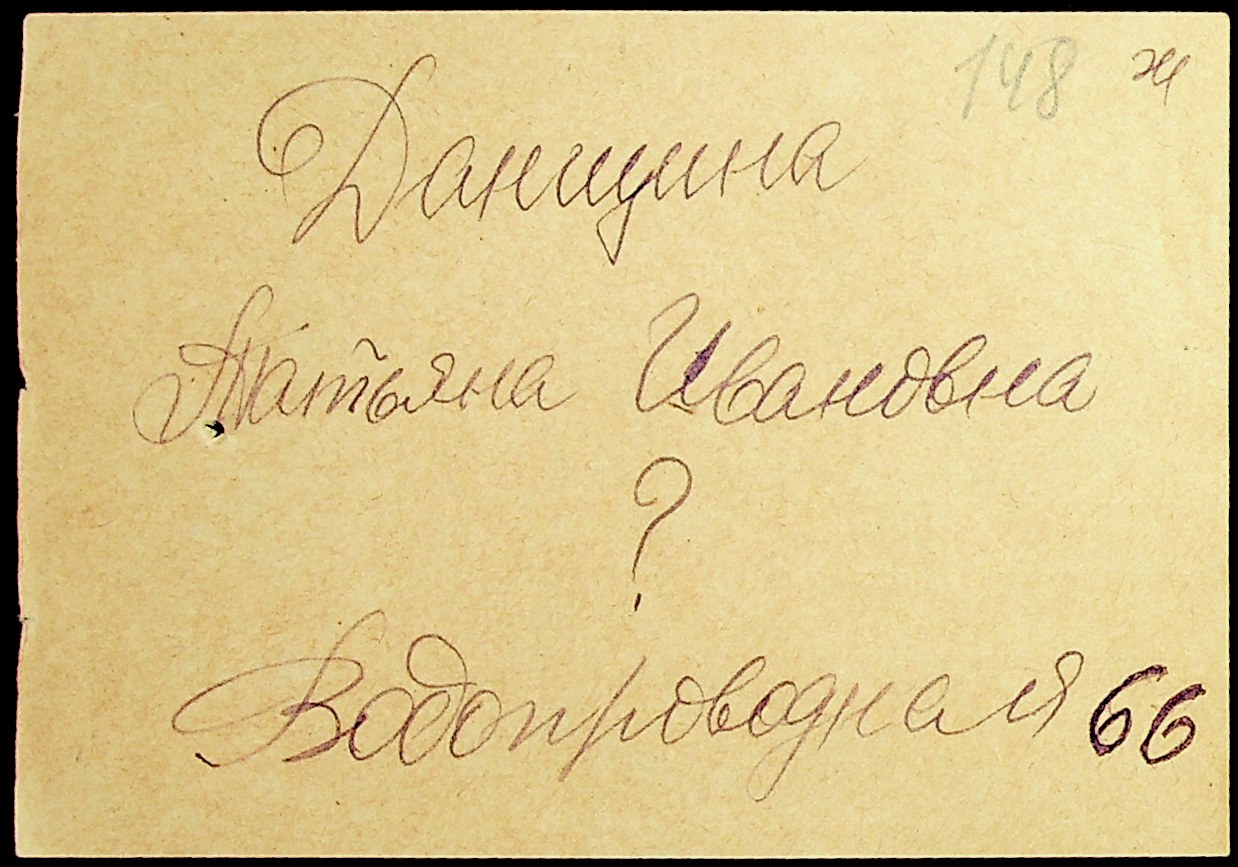 148 ж
Данщина
Татьяна Ивановна
?
Водопроводная 66